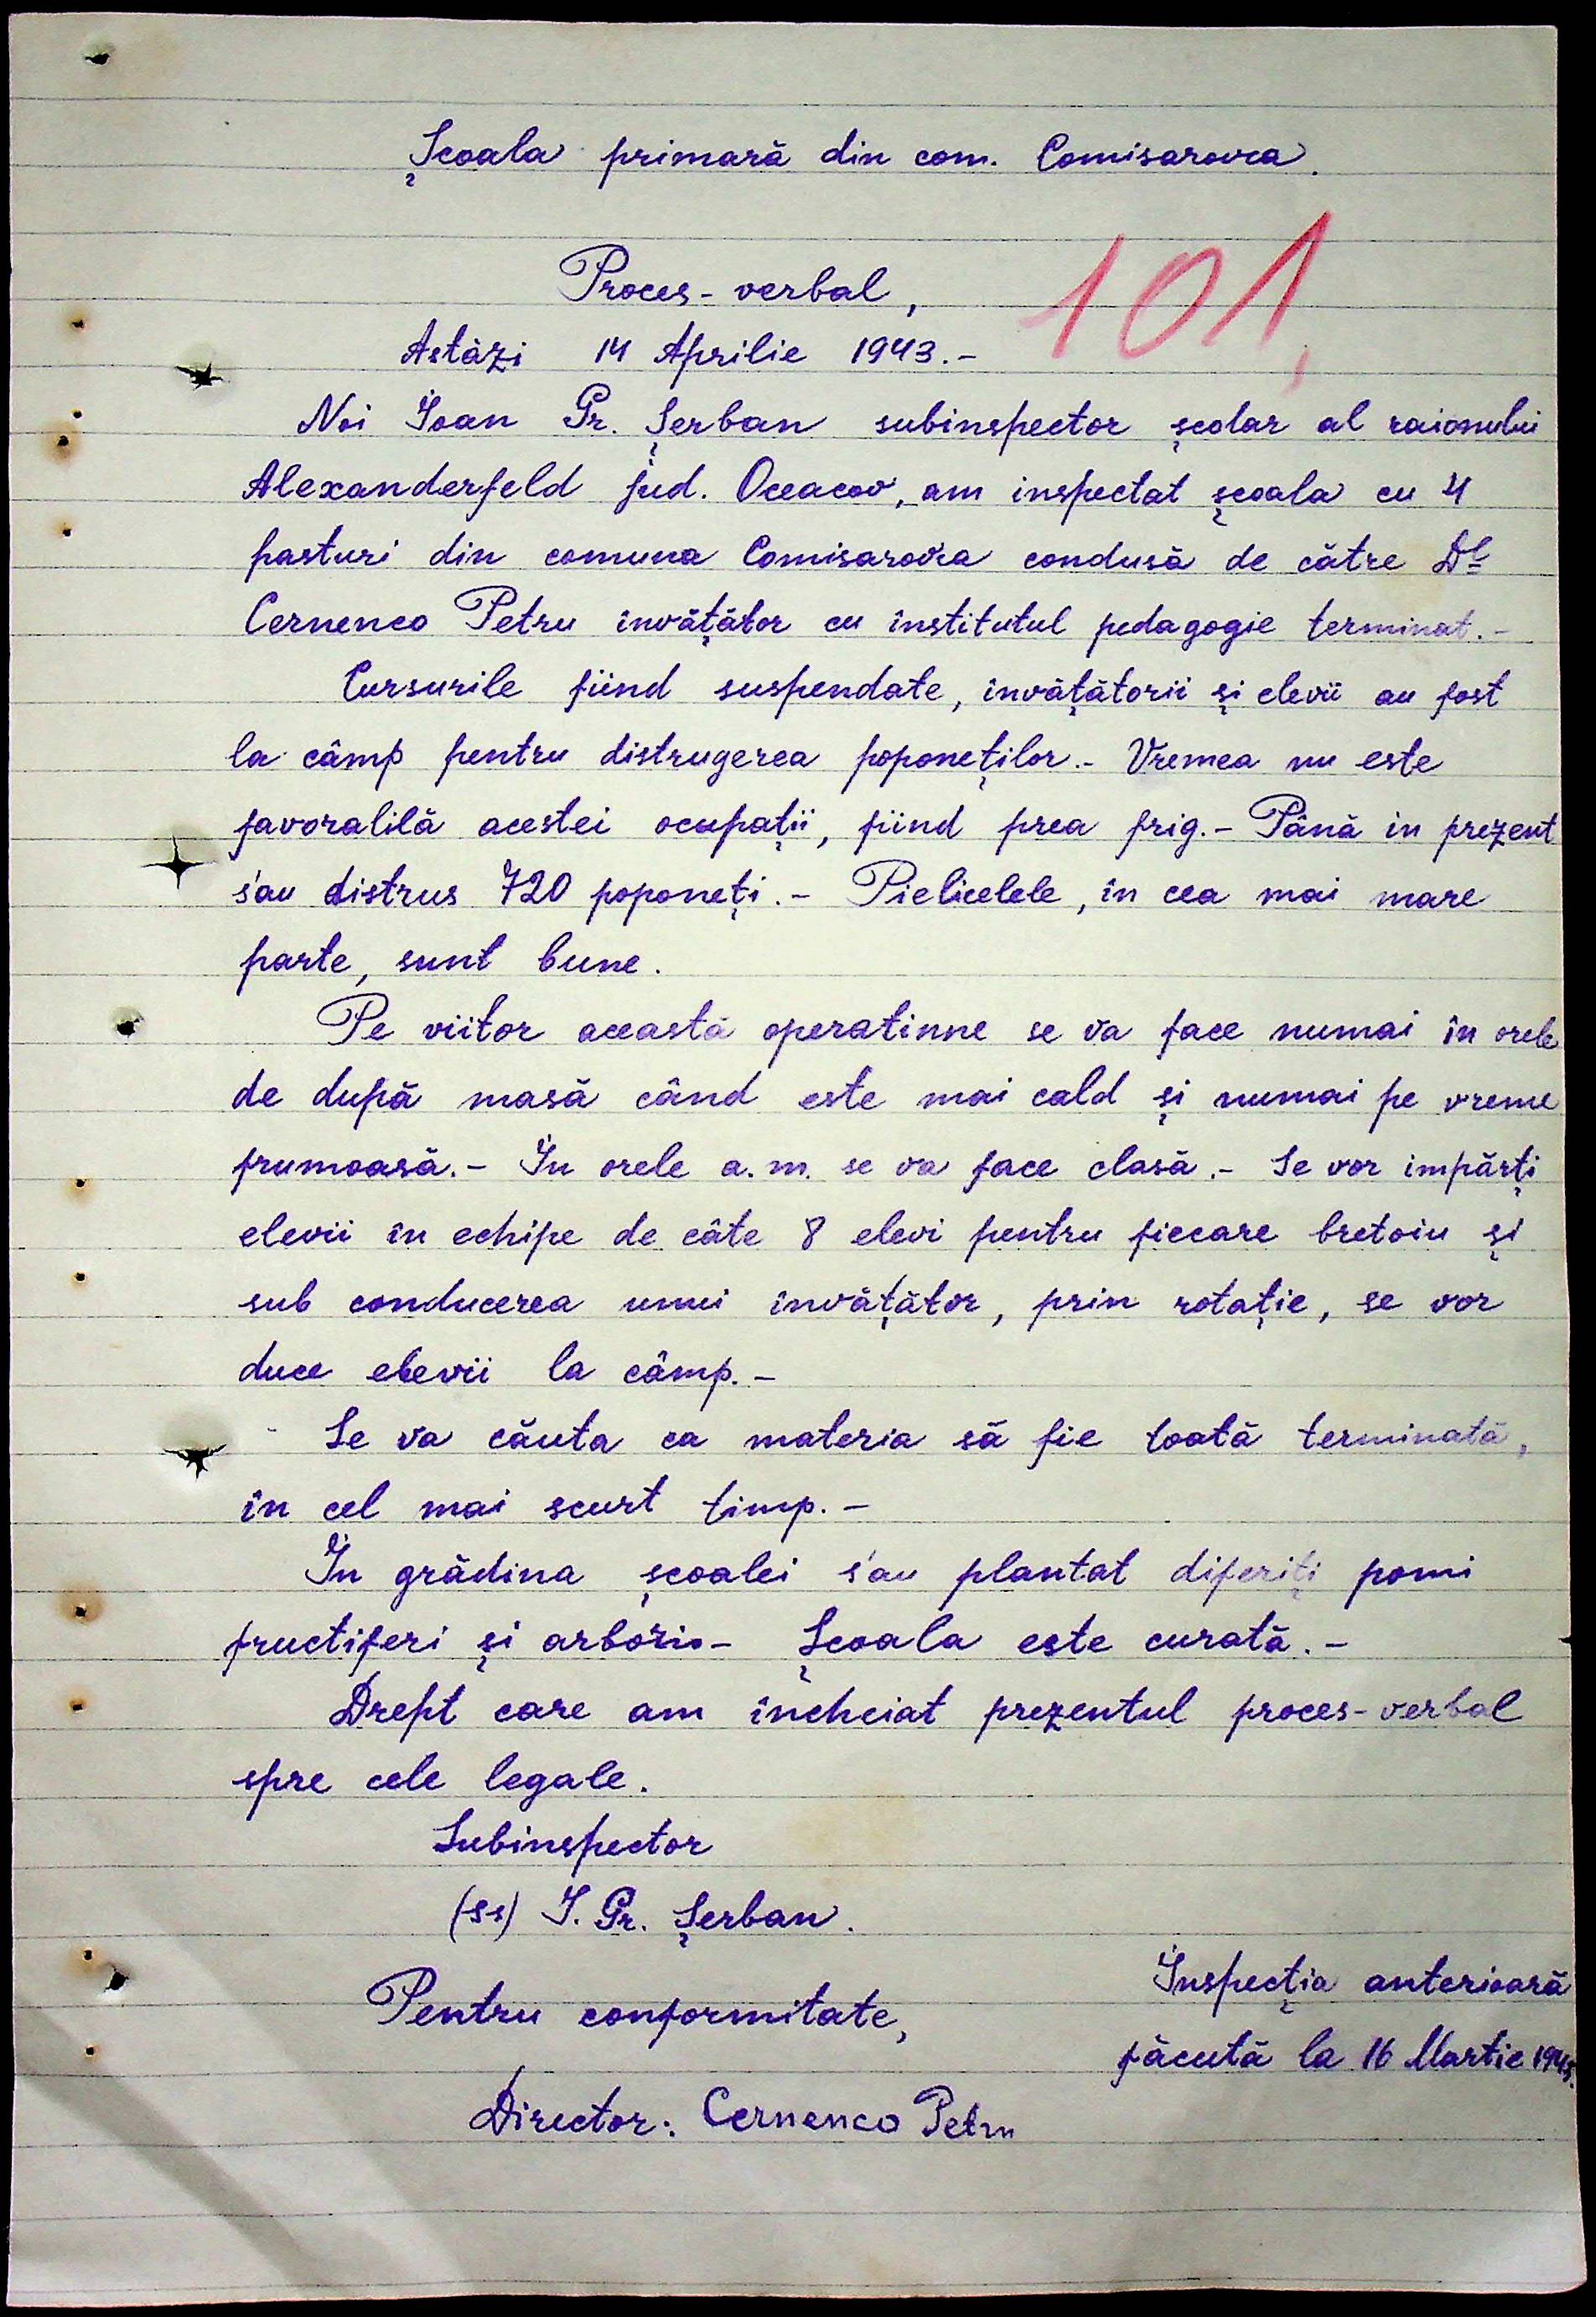 Școala primară din com. Comisarovca.
Proces-verbal,
101,
Astăzi 14 Aprilie 1943.-
Noi Ioan Gr. Șerban subinspector școlar al raionului
Alexanderfeld jud. Oceacov, am inspectat școala cu 4
posturi din comuna Comisarovca condusă de către Dl
Cernenco Petru învățător cu institutul pedagogic terminat.-
Cursurile fiind suspendate, învățătorii și elevii au fost
la câmp pentru distrugerea poponeților.- Vremea nu este
favoralilă acestei ocupații, fiind prea frig.- Până in prezent
s'au distrus 720 poponeți.- Pielicelele, în cea mai mare
parte, sunt bune.
Pe viitor această operatinne se va face numai în orele
de după masă când este mai cald și numai pe vreme
frumoasă.- In orele a.m. se va face clasă.- Se vor impărți
elevii în echipe de câte 8 elevi pentru fiecare bretoiu și
sub conducerea unui învățător, prin rotație, se vor
duce elevii la câmp.-
Se va căuta ca materia să fie toată terminată,
în cel mai scurt timp.-
In grădina școalei s'au plantat diferiți pomi
fructiferi și arbori.- Școala este curată.-
Drept care am încheiat prezentul proces-verbal
spre cele legale.
Subinspector
(ss) I. Gr. Șerban.
Pentru conformitate,
Director: Cernenco Petru
Inspecția anterioară
făcută la 16 Martie 1943.